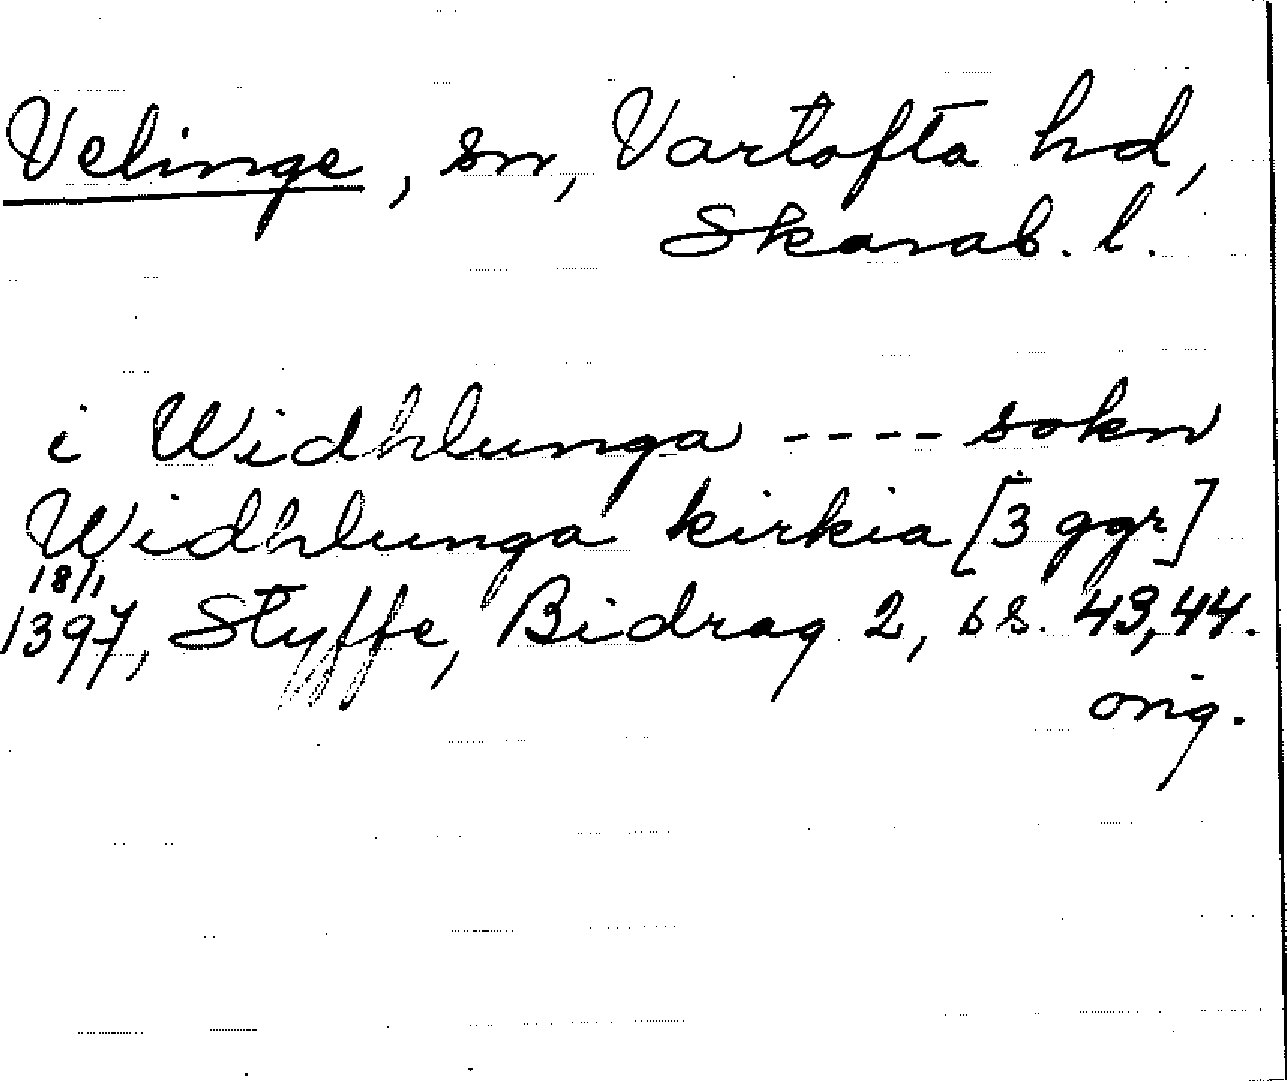 Velinge, sn, Vartofta hd,
Skarab. l.
i Widhlunga ---- sokn
Widhlunga kirkia [3 ggr]
18/1
1397, Styffe, Bidrag 2, ss. 43, 44.
orig.